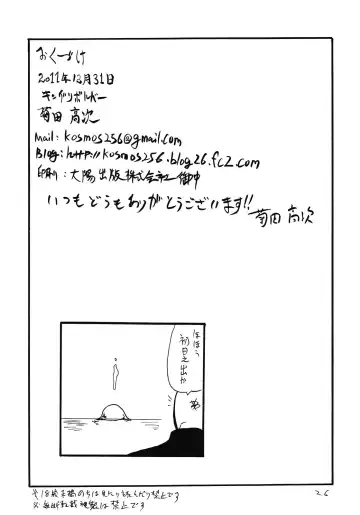 おくづけ
2011年12月31日
キングリボルバー
菊田 高次
Mail: kosmos256@gmail.com
Blog: http://kosmos256.blog26.fc2.com
印刷: 大陽出版株式会社 御中
いつもどうもありがとうございます!!
菊田 高次
ほほう
初日之出か
26
※18歳未満のちは見たり読んだり禁止です
※無断転載複製は禁止です